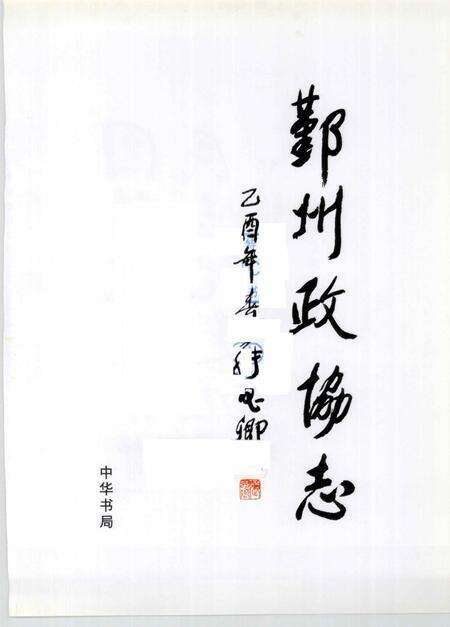 鄞州政協志
乙酉年春
中华书局